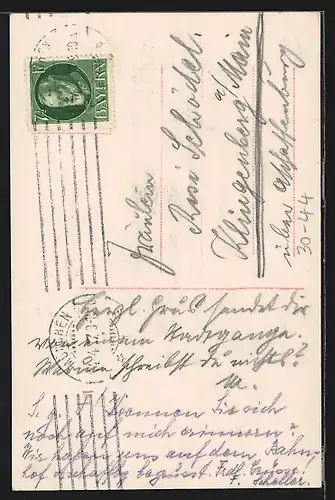 BAYERN
7½
MÜNCHEN
Fräulein
Rosi Schödel.
Klingenberg a/Main
über Aschaffenburg
30-44
Herzl. Grüß sendet dir
von einem
Warum schreibst du nicht?
M.
S. g. F. Koennen Sie sich
noch auf mich erinnern?
Wir haben uns auf dem Bahn-
hof begrüsst. Frdl. Grüsse!
Scholler.